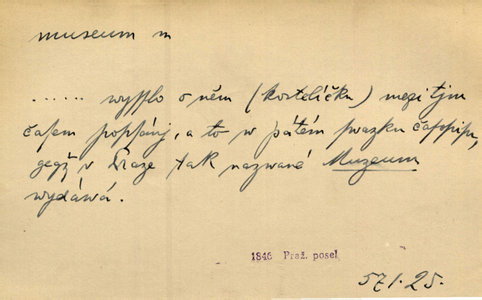 museum m
...... wyfflo o něm (kostelíčku) mezi tjm
čafem popfánj, a to w pátém swazku čafopifu,
gegž v Praze tak nazwané Muzeum
wydáwá.
1846 Praž. posel
571.25.